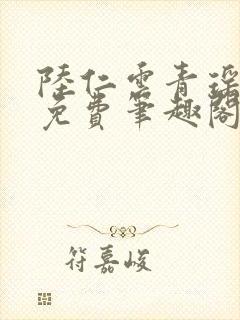 陸仁雲青瑶
免費筆趣閣
符嘉峻